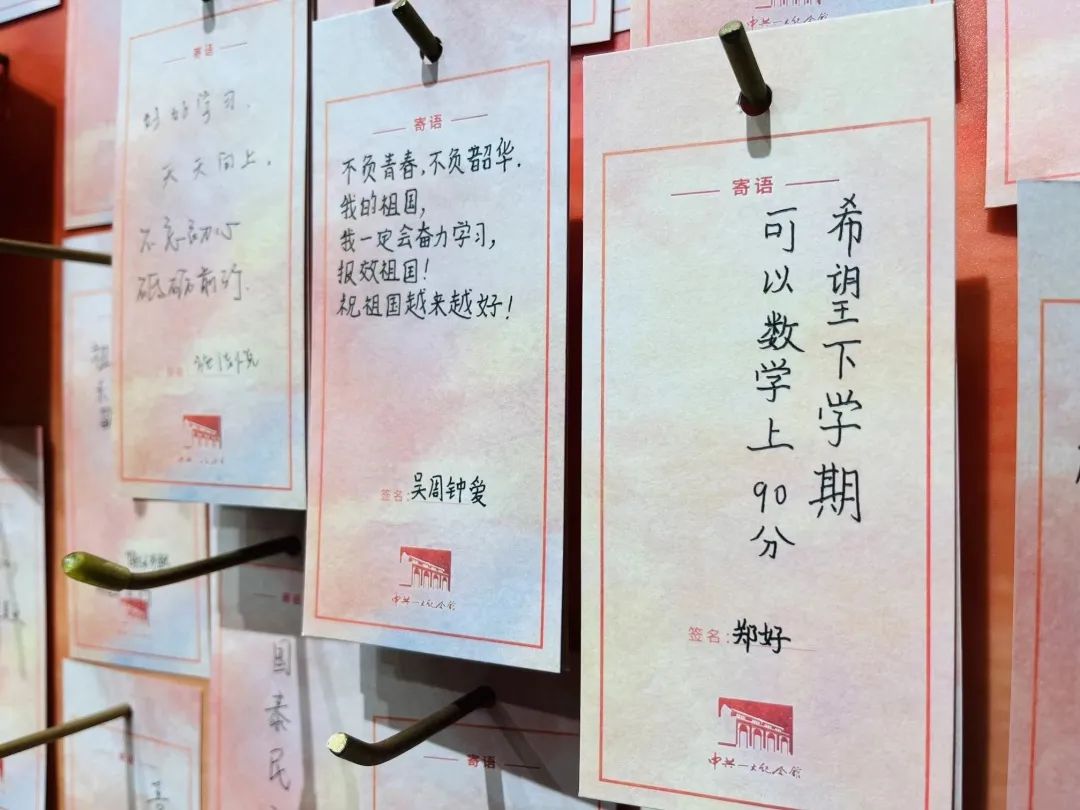 寄语
好好学习.
天天向上.
不忘初心
砥砺前行.
寄语
不负青春,不负韶华.
我的祖国,
我一定会奋力学习,
报效祖国!
祝祖国越来越好!
签名:吴周钟爱
中共一大纪念馆
寄语
希望下学期
可以数学上90分
签名:郑好
中共一大纪念馆
国泰民
寄语